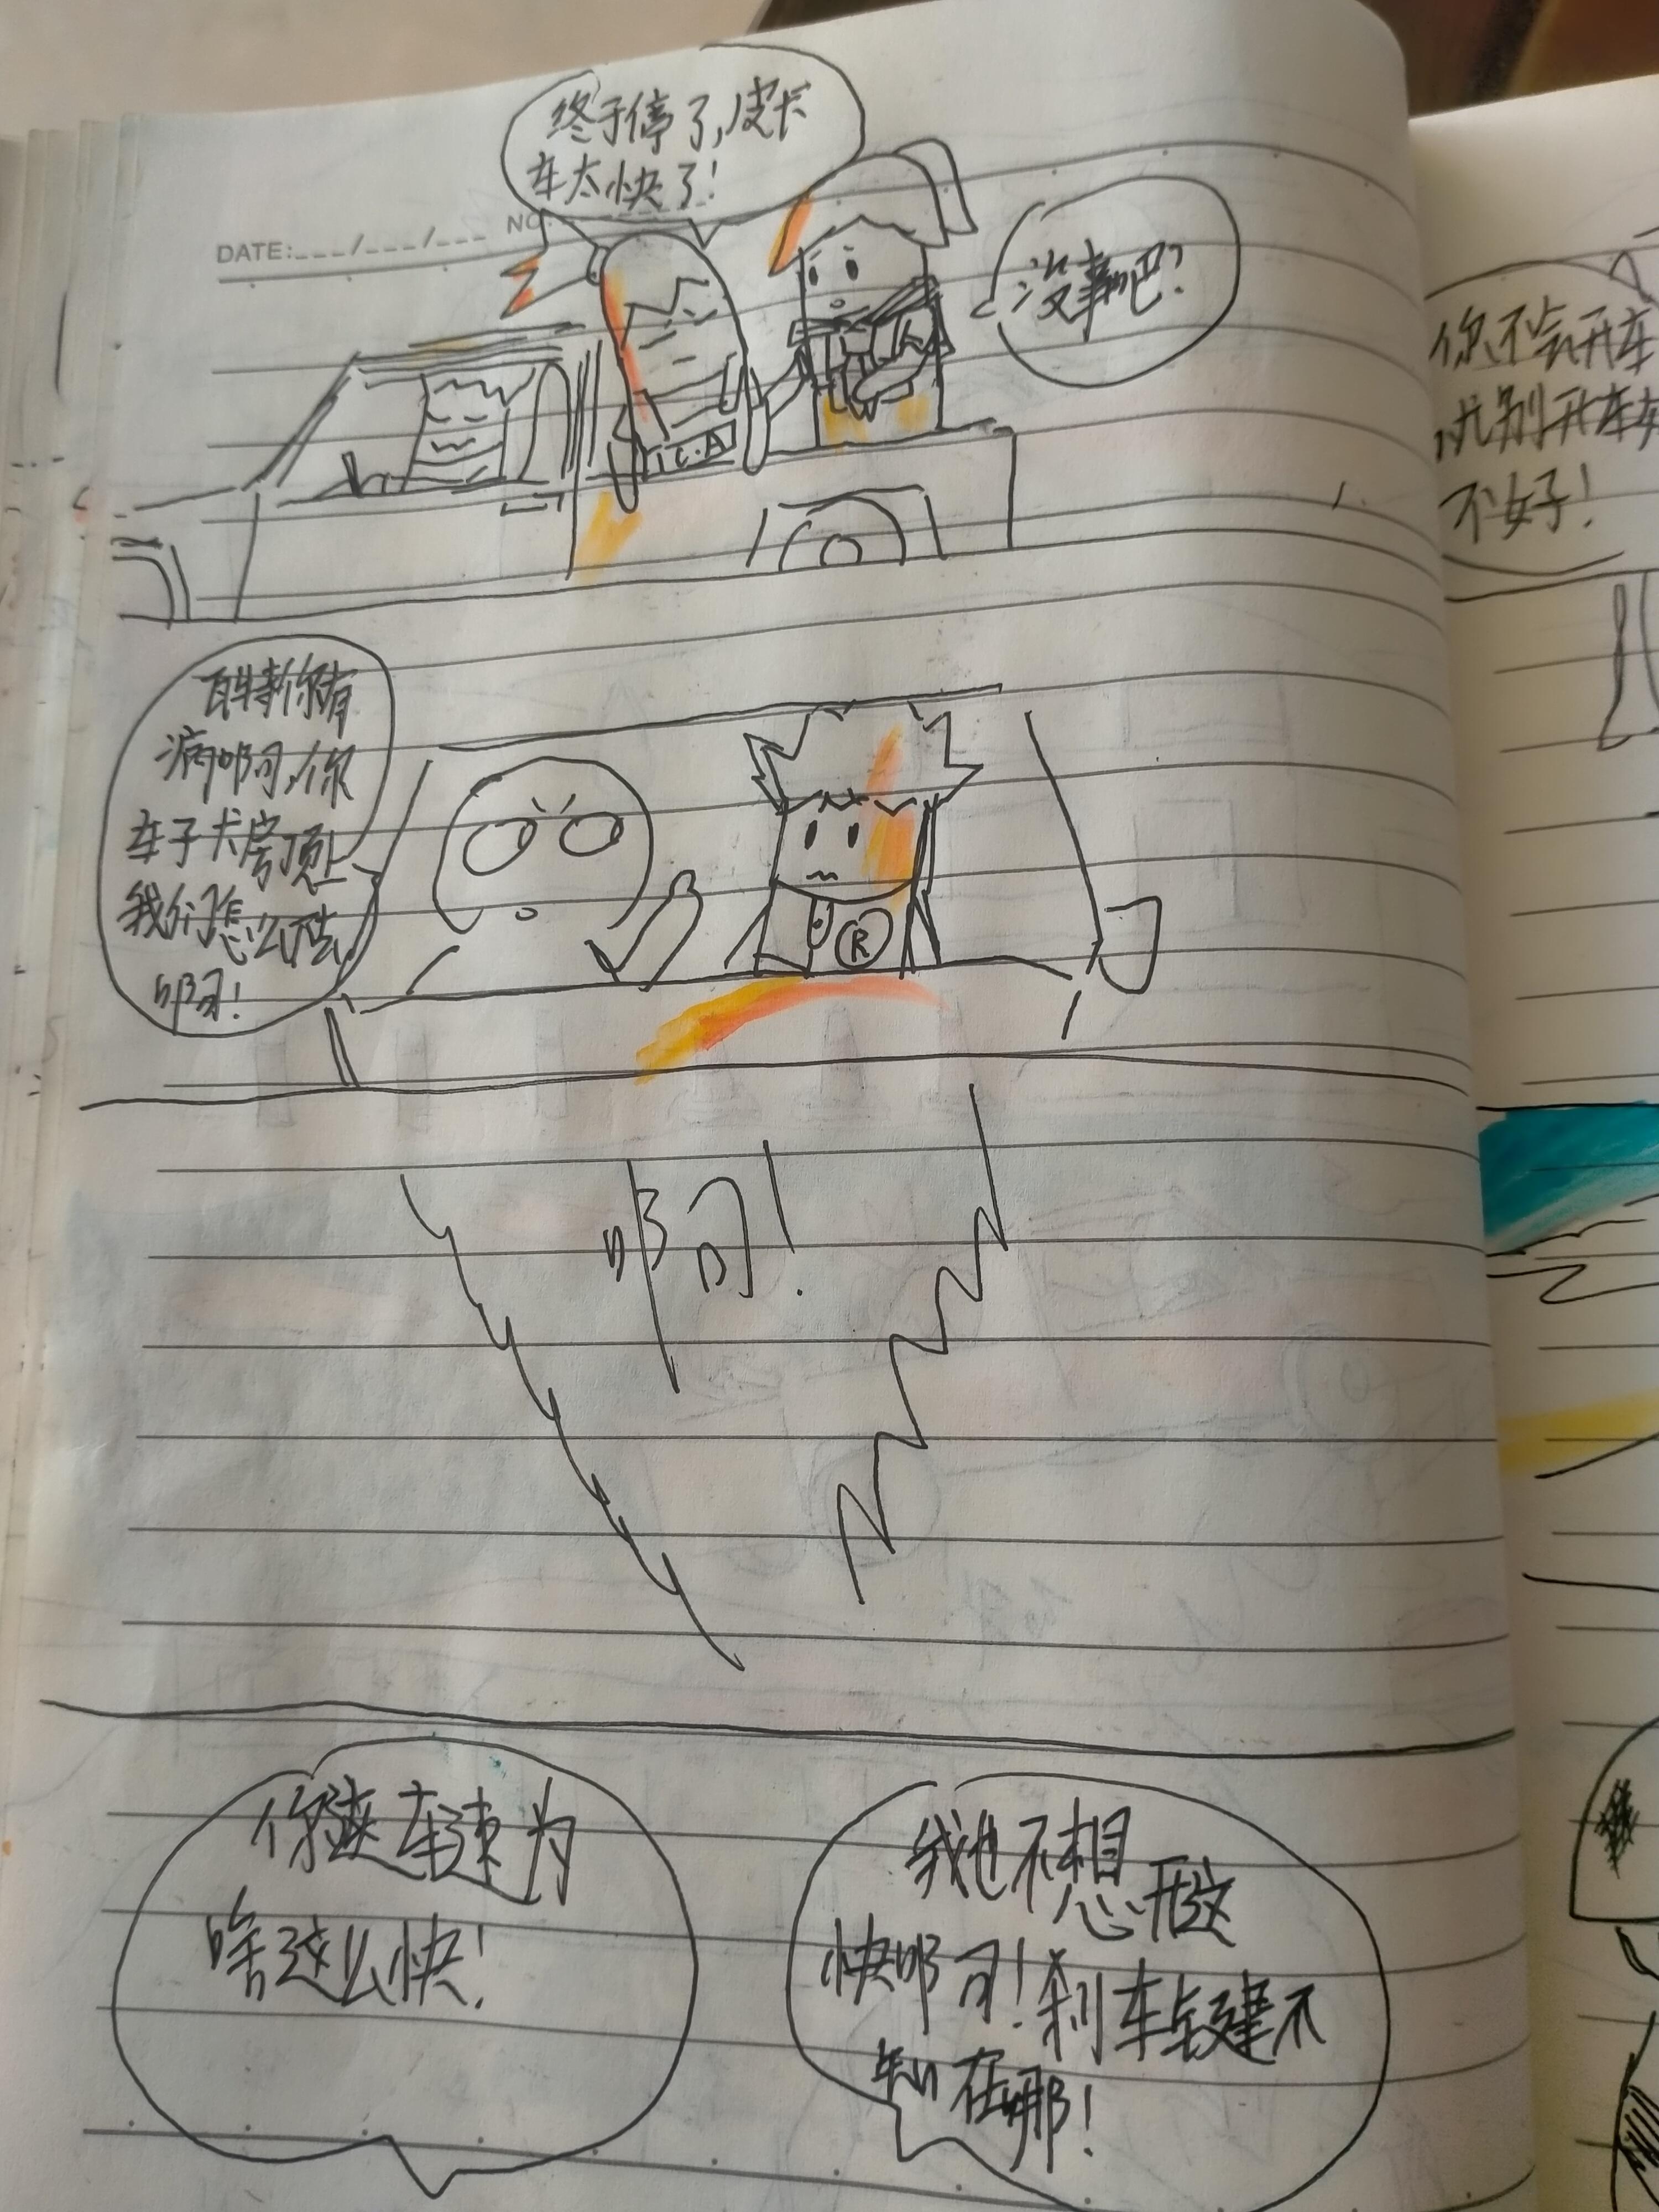 终于停了,皮卡
车太快了!
DATE:___/___/___ NO:
没事吧?
I C.A
你有
病啊,你
车子大房顶上
我们怎么下去
啊!
R
啊!
你这车速为
啥这么快!
我也不想开这
快啊!刹车键不
知在哪!
你不会开车
就别开车好
不好!